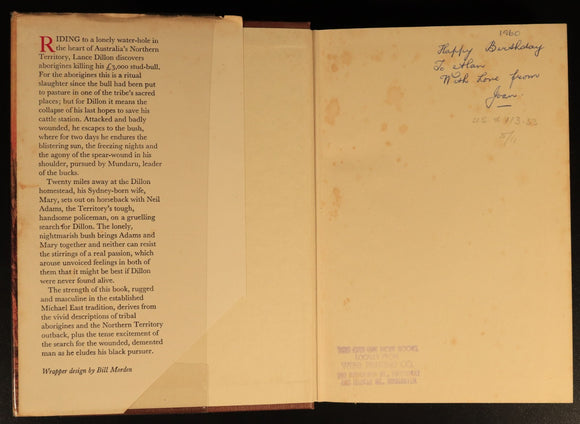 RIDING to a lonely water-hole in
the heart of Australia's Northern
Territory, Lance Dillon discovers
aborigines killing his £3,000 stud-bull.
For the aborigines this is a ritual
slaughter since the bull had been put
to pasture in one of the tribe's sacred
places; but for Dillon it means the
collapse of his last hopes to save his
cattle station. Attacked and badly
wounded, he escapes to the bush,
where for two days he endures the
blistering sun, the freezing nights and
the agony of the spear-wound in his
shoulder, pursued by Mundaru, leader
of the bucks.
Twenty miles away at the Dillon
homestead, his Sydney-born wife,
Mary, sets out on horseback with Neil
Adams, the Territory's tough,
handsome policeman, on a gruelling
search for Dillon. The lonely,
nightmarish bush brings Adams and
Mary together and neither can resist
the stirrings of a real passion, which
arouse unvoiced feelings in both of
them that it might be best if Dillon
were never found alive.
The strength of this book, rugged
and masculine in the established
Michael East tradition, derives from
the vivid descriptions of tribal
aborigines and the Northern Territory
outback, plus the tense excitement of
the search for the wounded, demented
man as he eludes his black pursuer.
Wrapper design by Bill Morden
1960
Happy Birthday
To Alan
With Love from
Joan